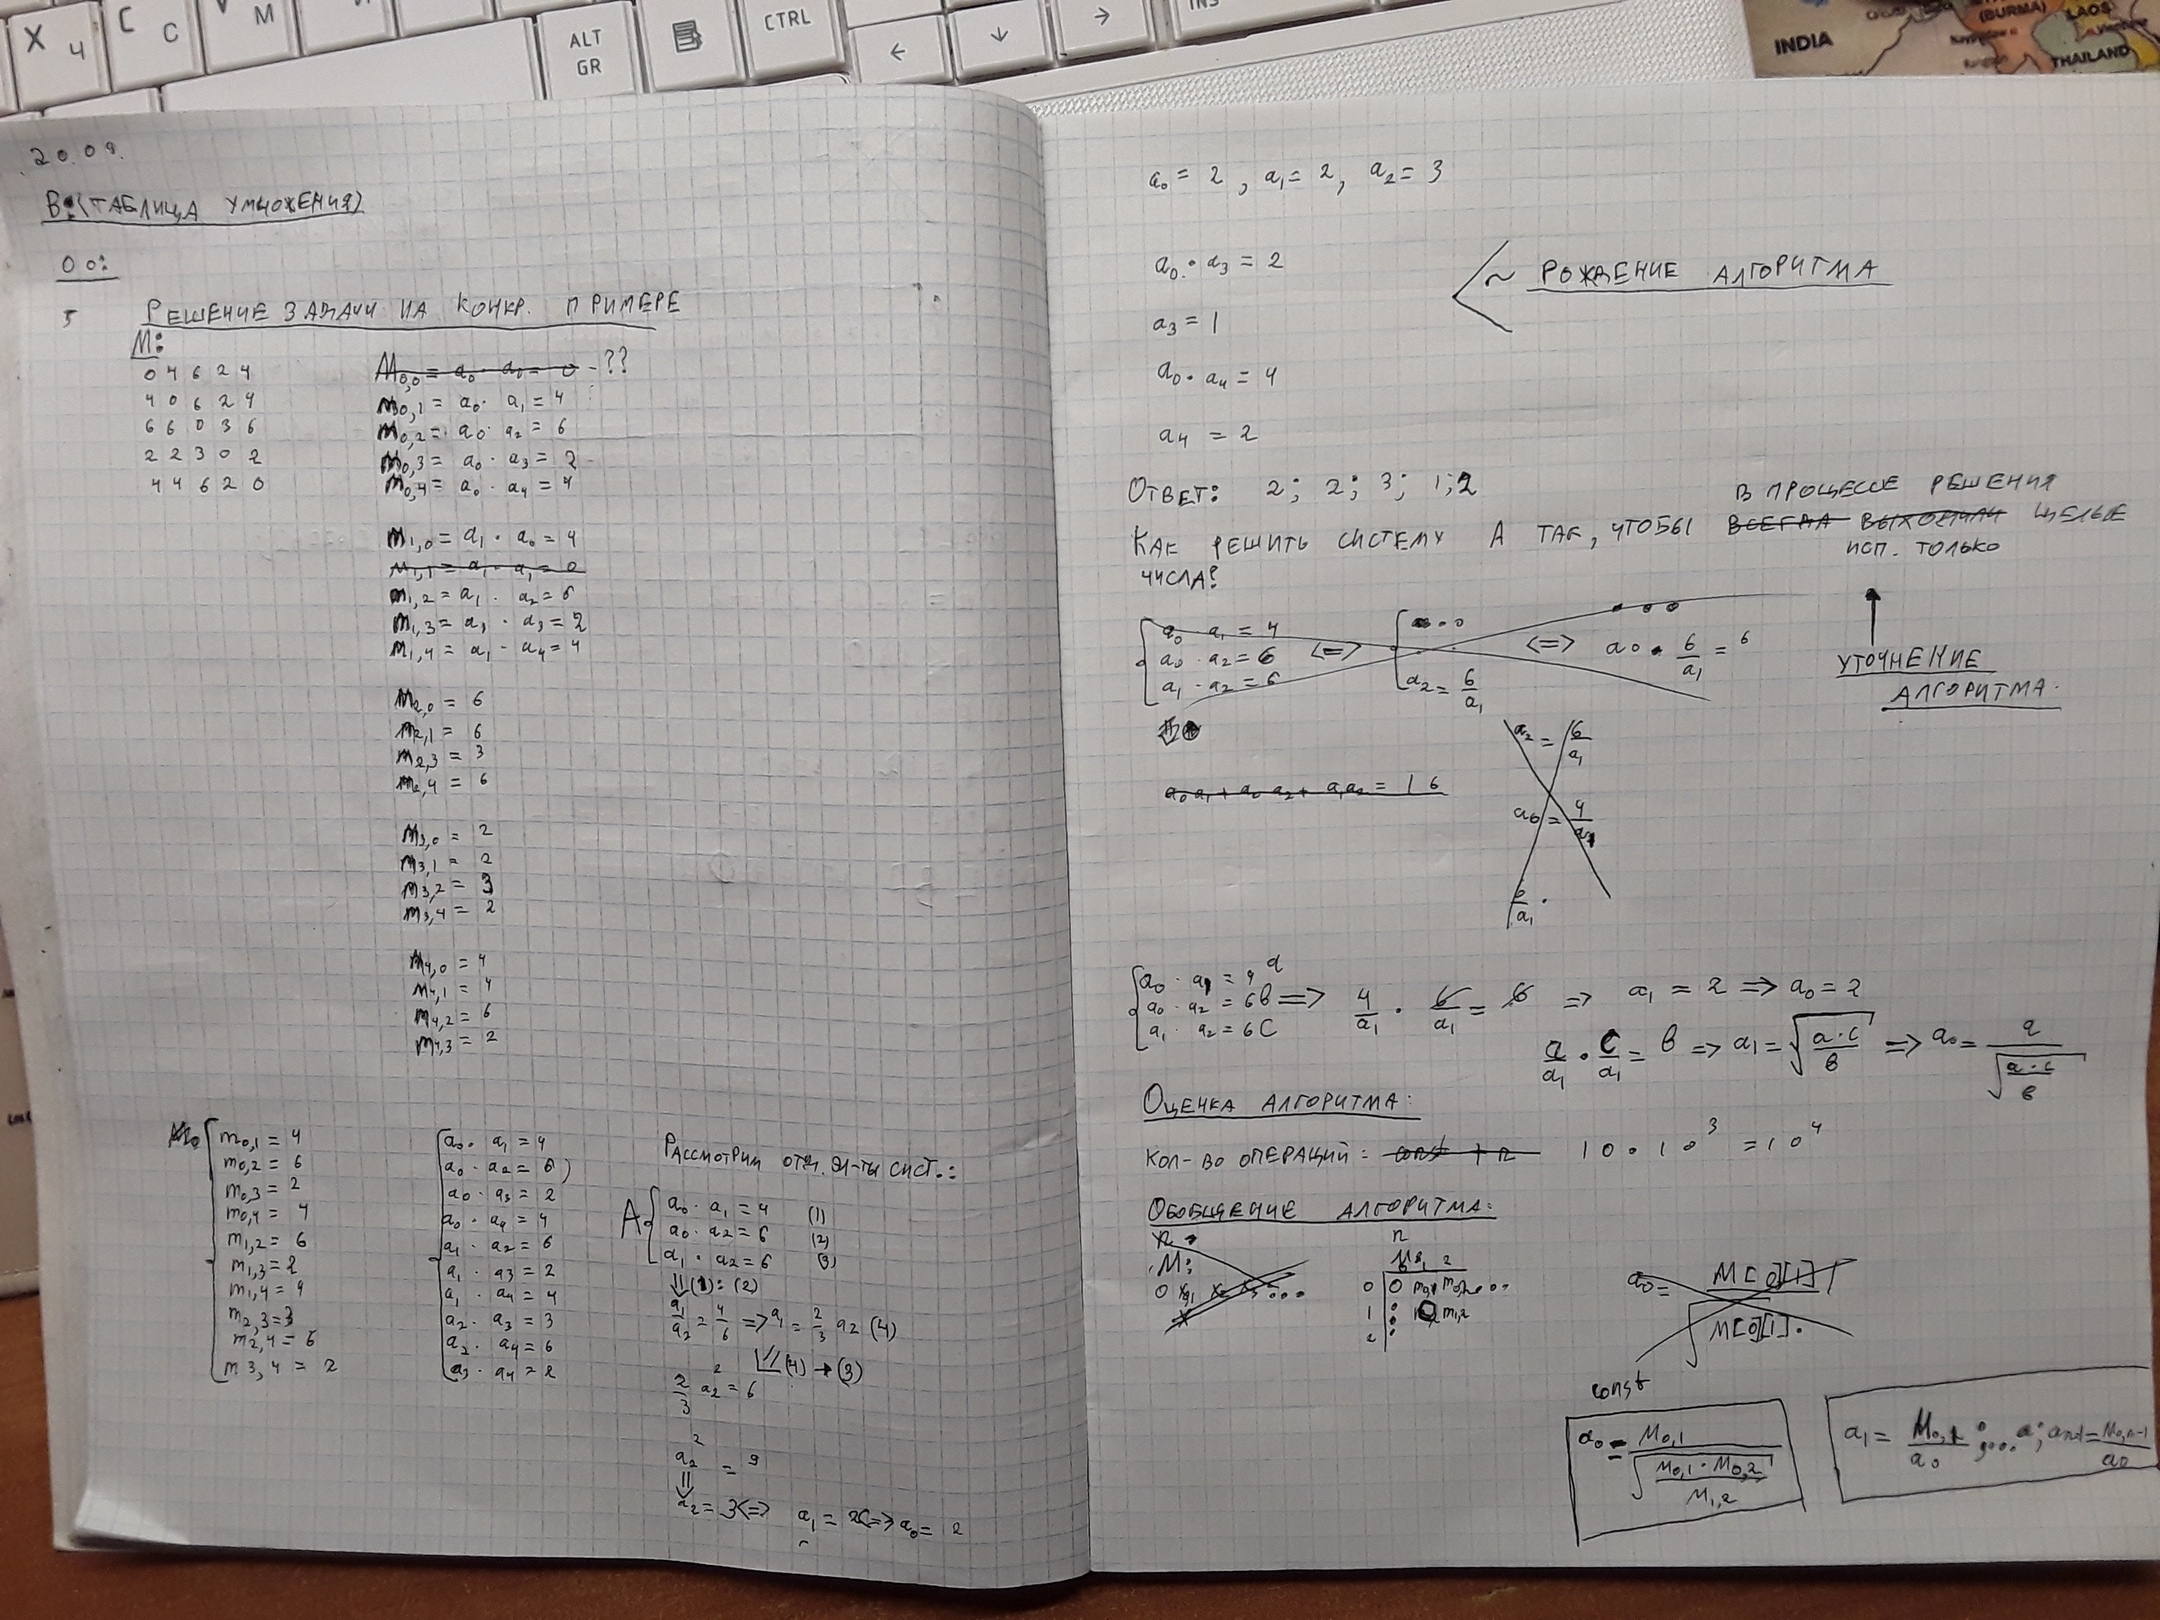 X Ч
C С
V М
И
ALT GR
CTRL
←
↓
→
INS
INDIA
(BURMA)
LAOS
THAILAND
20.09.
В (ТАБЛИЦА УМНОЖЕНИЯ)
00:
5
РЕШЕНИЕ ЗАДАЧИ НА КОНКР. ПРИМЕРЕ
М:
0 4 6 2 4
4 0 6 2 4
6 6 0 3 6
2 2 3 0 2
4 4 6 2 0
M0,0 = a0 · a0 = 0 - ??
m0,1 = a0 · a1 = 4
m0,2 = a0 · a2 = 6
m0,3 = a0 · a3 = 2
m0,4 = a0 · a4 = 4
m1,0 = a1 · a0 = 4
m1,1 = a1 · a1 = 0
m1,2 = a1 · a2 = 6
m1,3 = a1 · a3 = 2
m1,4 = a1 · a4 = 4
m2,0 = 6
m2,1 = 6
m2,3 = 3
m2,4 = 6
m3,0 = 2
m3,1 = 2
m3,2 = 3
m3,4 = 2
m4,0 = 4
m4,1 = 4
m4,2 = 6
m4,3 = 2
m0,1 = 4
m0,2 = 6
m0,3 = 2
m0,4 = 4
m1,2 = 6
m1,3 = 2
m1,4 = 4
m2,3 = 3
m2,4 = 6
m3,4 = 2
a0 · a1 = 4
a0 · a2 = 6
a0 · a3 = 2
a0 · a4 = 4
a1 · a2 = 6
a1 · a3 = 2
a1 · a4 = 4
a2 · a3 = 3
a2 · a4 = 6
a3 · a4 = 2
РАССМОТРИМ ОТД. ЭЛ-ТЫ СИСТ.:
A { a0 · a1 = 4 (1)
a0 · a2 = 6 (2)
a1 · a2 = 6 (3)
⇓ (1) : (2)
a1/a2 = 4/6 => a1 = 2/3 a2 (4)
⇓ (4) → (3)
2/3 a2² = 6
a2² = 9
⇓
a2 = 3 <=> a1 = 2 <=> a0 = 2
a0 = 2 , a1 = 2, a2 = 3
a0 · a3 = 2
~ РОЖДЕНИЕ АЛГОРИТМА
a3 = 1
a0 · a4 = 4
a4 = 2
ОТВЕТ: 2; 2; 3; 1; 2
В ПРОЦЕССЕ РЕШЕНИЯ
КАК РЕШИТЬ СИСТЕМУ А ТАК, ЧТОБЫ ВСЕГДА ВЫХОДИЛИ ЦЕЛЫЕ
ИСП. ТОЛЬКО
ЧИСЛА?
a0 a1 = 4
a0 · a2 = 6 <=>
a1 · a2 = 6
a2 = 6/a1
<=> a0 · 6/a1 = 6
УТОЧНЕНИЕ
АЛГОРИТМА.
a0 a1 + a0 a2 + a1 a2 = 16
a2 = 6/a1
a0 = 4/a1
a0 · a1 = 4 a
a0 · a2 = 6 в => 4/a1 · 6/a1 = 6 => a1 = 2 => a0 = 2
a1 · a2 = 6 c
a/a1 · c/a1 = в => a1 = √(a·c/в) => a0 = a/√(a·c/в)
ОЦЕНКА АЛГОРИТМА:
КОЛ-ВО ОПЕРАЦИЙ = const + n 10 · 10³ = 10⁴
ОБОБЩЕНИЕ АЛГОРИТМА:
n
М:
n
0 1 2
0 0 m0,1 m0,2 ...
1 m1,2
2
a0 = M[0][1]
M[0][1] ·
const
a0 = M0,1/√(M0,1 · M0,2/M1,2)
a1 = M0,1/a0 ; ... = M0,n-1/a0